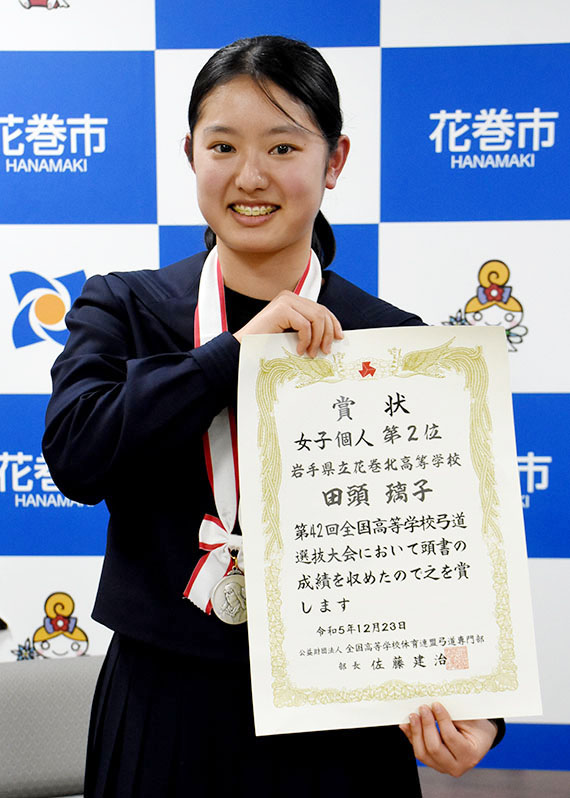 花巻市
HANAMAKI
花巻市
HANAMAKI
花巻
HANAM
市
KI
賞状
女子個人 第2位
岩手県立花巻北高等学校
田頭 璃子
第42回全国高等学校弓道
選抜大会において頭書の
成績を収めたので之を賞
します
令和5年12月23日
公益財団法人 全国高等学校体育連盟弓道専門部
部長 佐藤建治